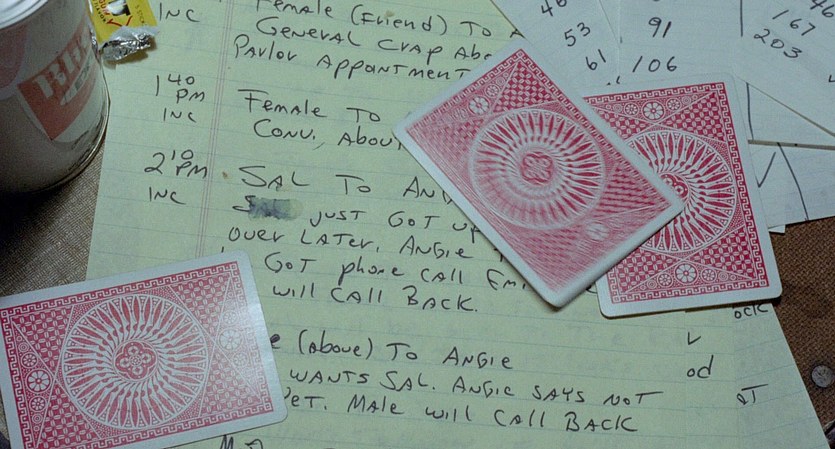 INC
Female (Friend) To
General Crap Abo
Parlor Appointment
1 40 PM
INC
Female To
Conv. About
2 10 PM
INC
Sal To An
just got up
over later. Angie
Got phone call
will call back.
(above) To Angie
wants Sal. Angie says not
yet. Male will call back
53
61
91
106
167
203
ock
od